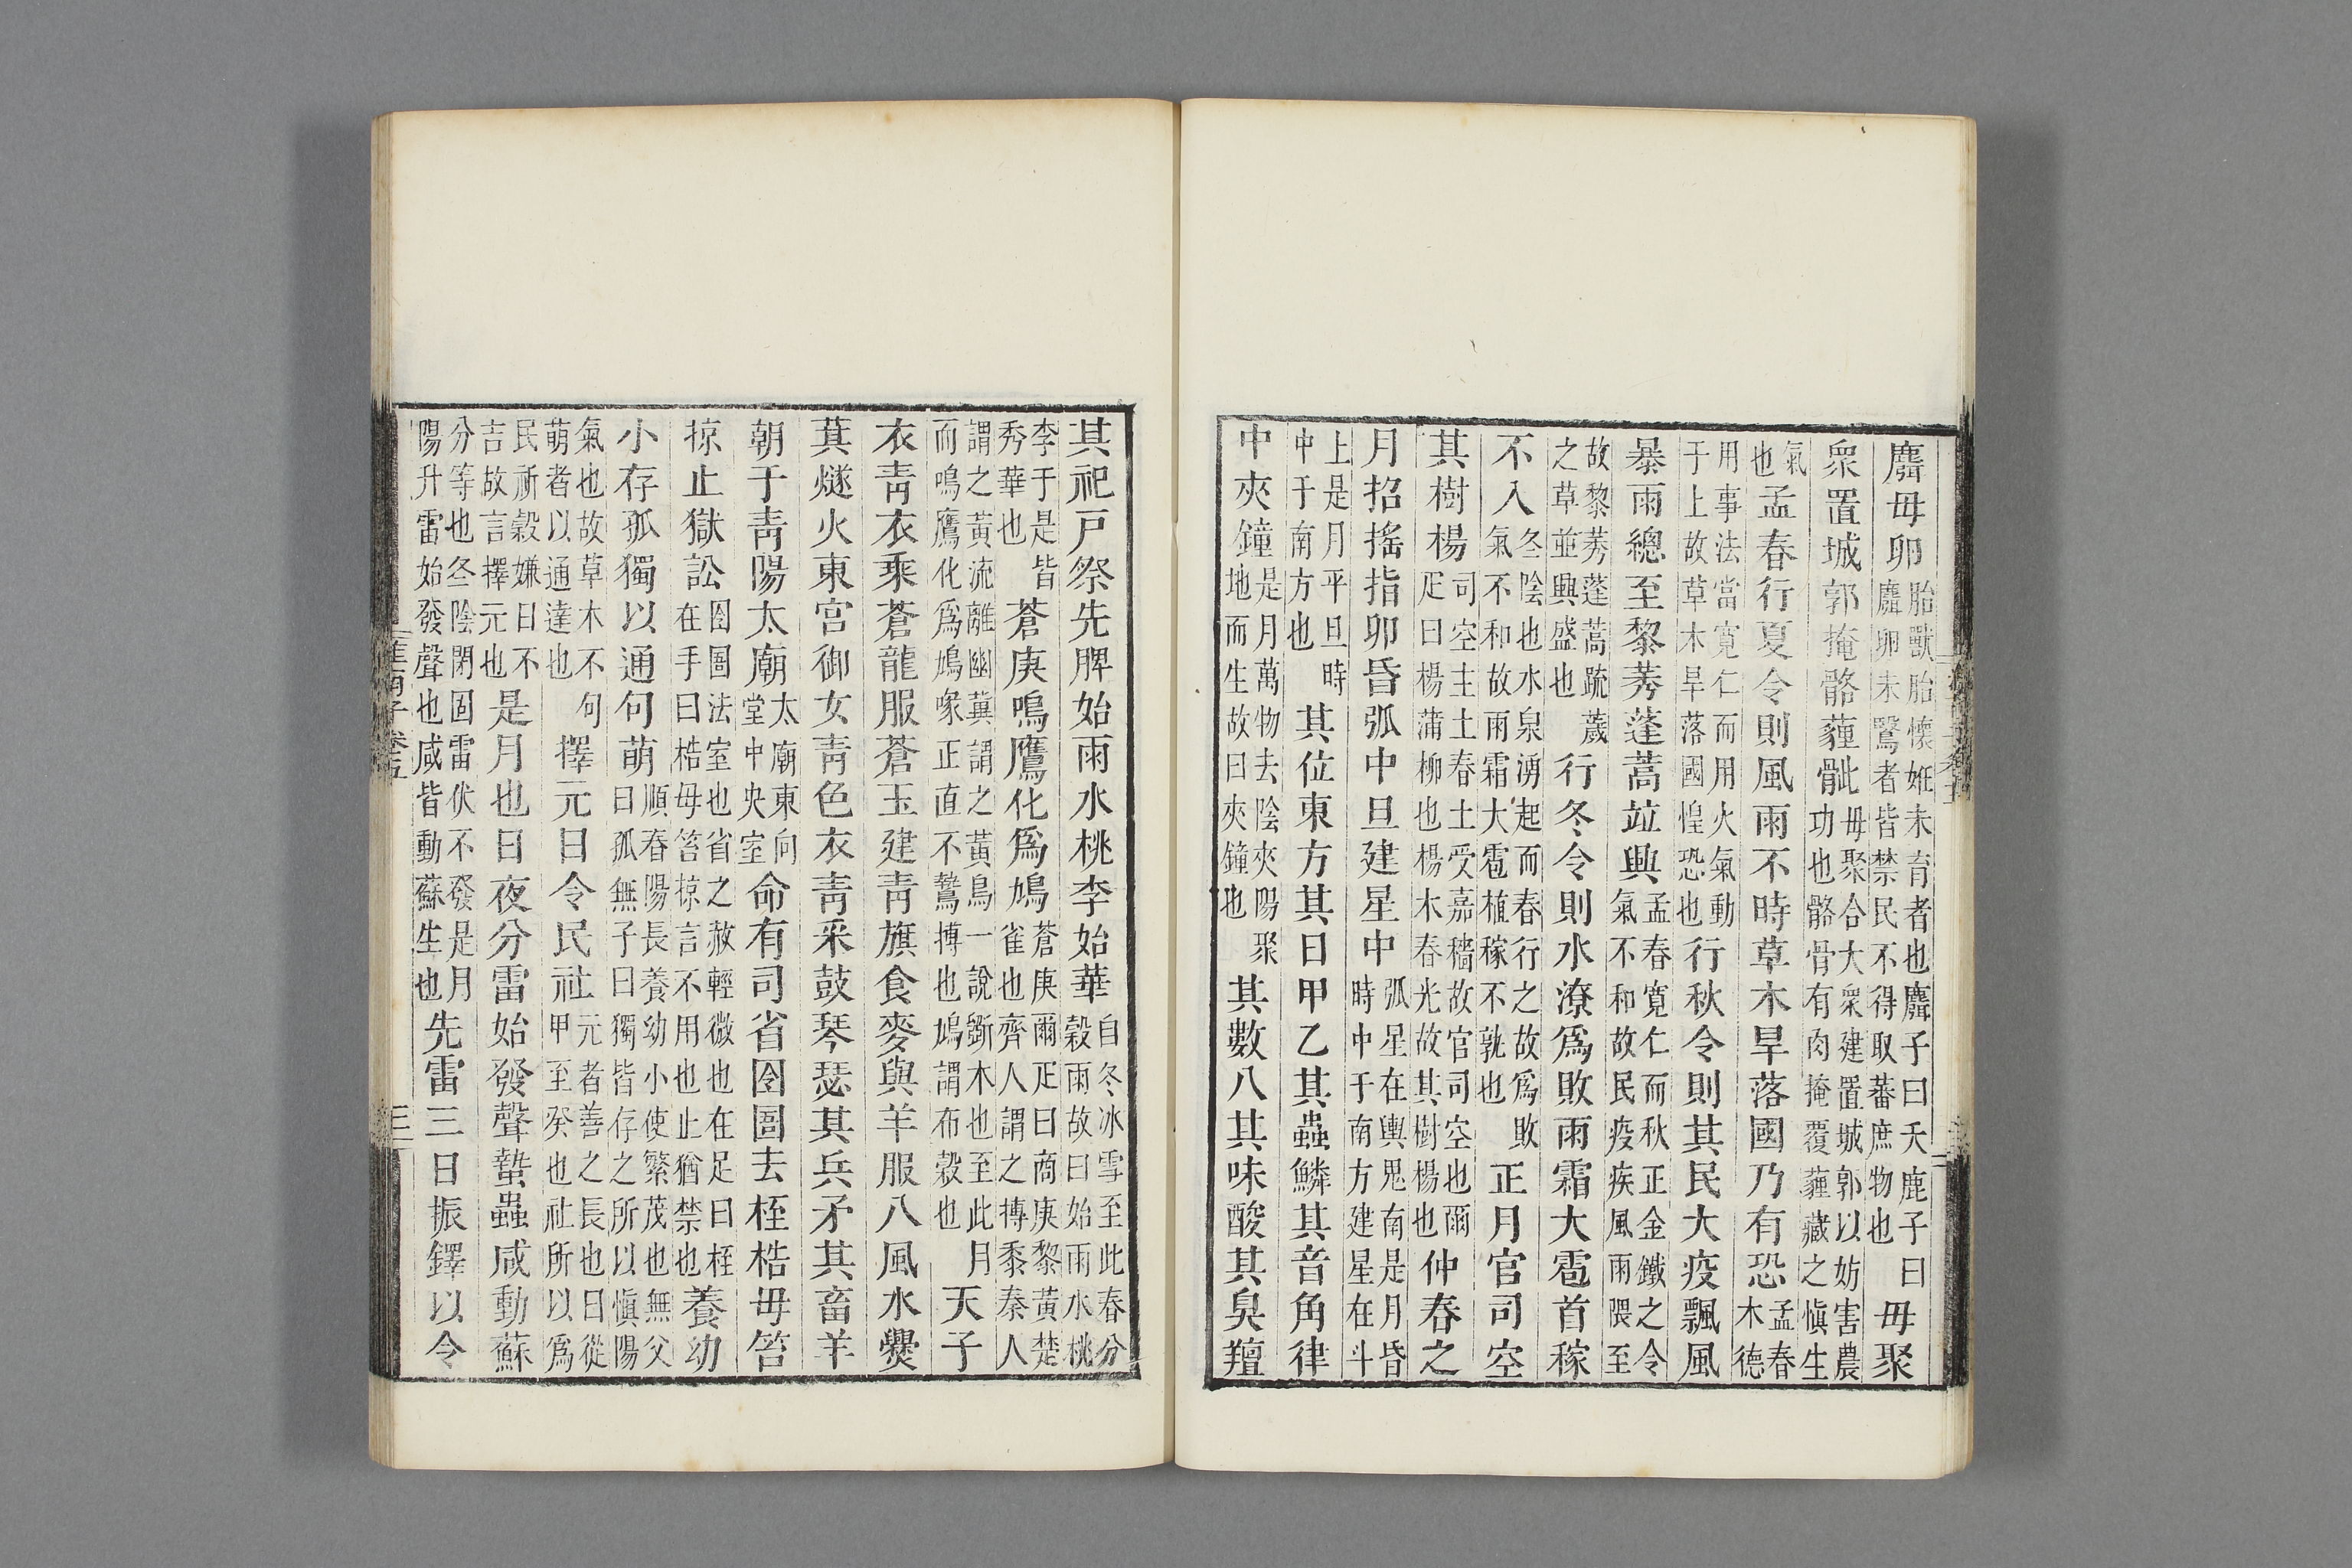 麛毋卵胎獸胎懷妊未育者也麛子曰夭鹿子曰麛卵未鷇者皆禁民不得取蕃庶物也毋聚
衆置城郭掩骼薶骴毋聚合大衆建置城郭以妨害農功也骼骨有肉掩覆薶藏之愼生
氣也孟春行夏令則風雨不時草木旱落國乃有恐孟春木德
用事法當寬仁而用火氣動于上故草木旱落國惶恐也行秋令則其民大疫飄風
暴雨總至黎莠蓬蒿竝興孟春寬仁而秋正金鐵之令氣不和故民疫疾風雨隈至
故黎莠蓬蒿疏薉之草並興盛也行冬令則水潦爲敗雨霜大雹首稼
不入冬陰也水泉湧起而春行之故爲敗氣不和故雨霜大雹植稼不孰也正月官司空
其樹楊司空主土春土受嘉穡故官司空也爾疋曰楊蒲柳也楊木春光故其樹楊也仲春之
月招搖指卯昏弧中旦建星中弧星在輿鬼南是月昏時中于南方建星在斗
上是月平旦時中于南方也其位東方其日甲乙其蟲鱗其音角律
中夾鐘是月萬物去陰夾陽聚地而生故曰夾鐘也其數八其味酸其臭羶
其祀戸祭先脾始雨水桃李始華自冬冰雪至此春分穀雨故曰始雨水桃
李于是皆秀華也蒼庚鳴鷹化爲鳩蒼庚爾疋曰商庚黎黃楚雀也齊人謂之摶黍秦人
謂之黃流離幽冀謂之黃鳥一說斲木也至此月而鳴鷹化爲鳩喙正直不鷙搏也鳩謂布穀也天子
衣靑衣乘蒼龍服蒼玉建靑旗食麥與羊服八風水爨
萁燧火東宮御女靑色衣靑采鼓琴瑟其兵矛其畜羊
朝于靑陽太廟太廟東向堂中央室命有司省囹圄去桎梏毋笞
掠止獄訟囹圄法室也省之赦輕微也在足曰桎在手曰梏毋笞掠言不用也止猶禁也養幼
小存孤獨以通句萌順春陽長養幼小使繁茂也無父曰孤無子曰獨皆存之所以愼陽
氣也故草木不句萌者以通達也擇元日令民社元者善之長也日從甲至癸也社所以爲
民祈穀嫌日不吉故言擇元也是月也日夜分雷始發聲蟄蟲咸動蘇
分等也冬陰閉固雷伏不發是月陽升雷始發聲也咸皆動蘇生也先雷三日振鐸以令
淮南子卷五
三